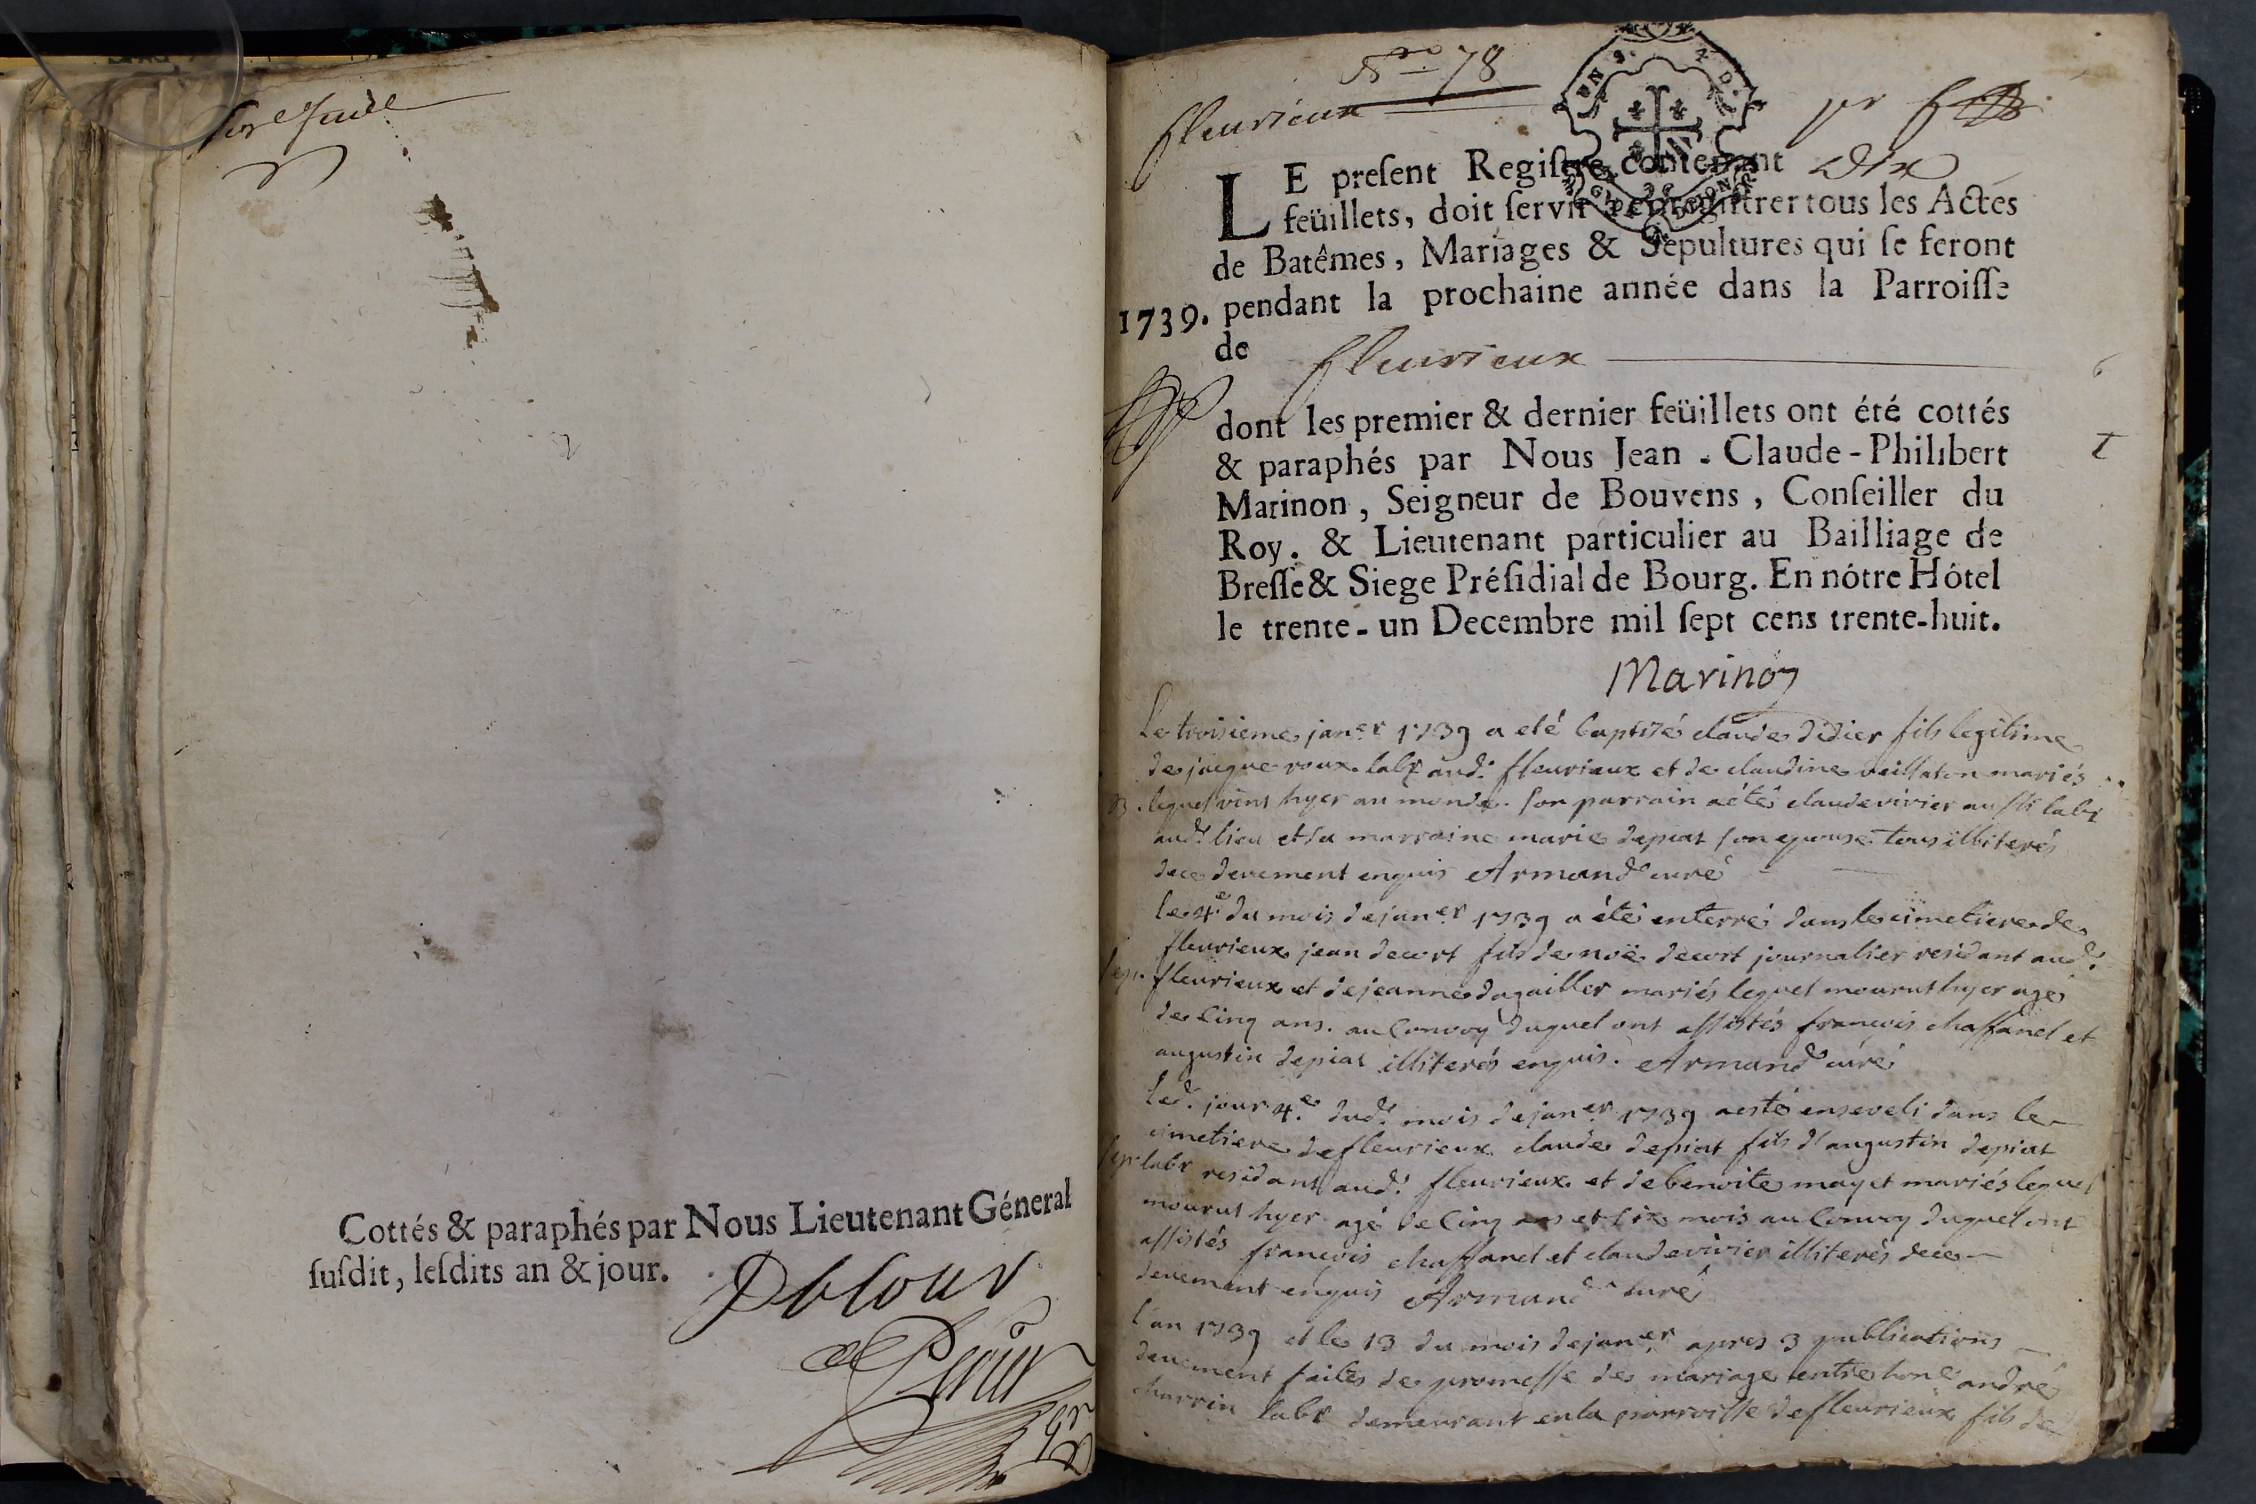 Cottés & paraphés par Nous Lieutenant Géneral
ſuſdit, leſdits an & jour.
N.ro 78
fleurieux
LE preſent Regiſtre contenant Dix
feüillets, doit ſervir à enregiſtrer tous les Actes
de Batêmes, Mariages & Sepultures qui ſe feront
1739. pendant la prochaine année dans la Parroiſſe
de fleurieux
dont les premier & dernier feüillets ont été cottés
& paraphés par Nous Jean - Claude - Philibert
Marinon, Seigneur de Bouvens, Conſeiller du
Roy. & Lieutenant particulier au Bailliage de
Breſſe & Siege Préſidial de Bourg. En nôtre Hôtel
le trente - un Decembre mil ſept cens trente-huit.
Marinon
Le troisieme jan.er 1739 a eté baptisé claude didier fils legitime
de jacque roux labr aud.t fleurieux et de claudine mariés
B. lequel vint hyer au monde. son parrain a été claude vivier aussi labr
aud.t lieu et sa marraine marie depiat son epouse tous illiterés
de ce deuement enquis Armand curé
le 4.e du mois de jan.er 1739 a été enterré dans le cimetiere de
fleurieux jean decort fils de noë decort journalier residant aud.t
sep. fleurieux et de jeanne dagailler mariés lequel mourut hyer agé
de cinq ans. au convoy duquel ont assistés francois chaffanel et
augustin depiat illiterés enquis. Armand curé
led.t jour 4.e dud.t mois de jan.er 1739 a esté enseveli dans le
cimetiere de fleurieux claude depiat fils d'augustin depiat
sep. labr residant aud.t fleurieux et de benoite mayet mariés lequel
mourut hyer agé de cinq ans et six mois au convoy duquel ont
assistés francois chaffanel et claude vivier illiterés de ce
deuement enquis Armand curé
l'an 1739 et le 13 du mois de jan.er apres 3 publications
deuement faites de promesse de mariage entre hon.e andré
charrin labr demeurant en la parroisse de fleurieux fils de